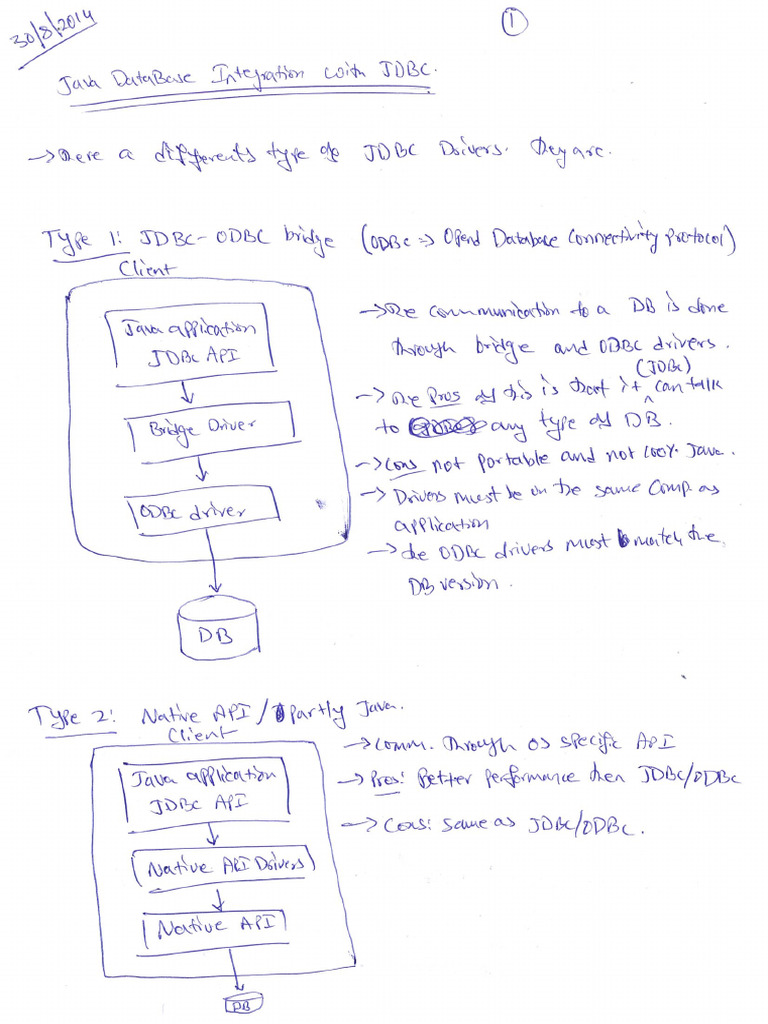 30/8/2014
1
Java DataBase Integration with JDBC.
→ There a differents type of JDBC Drivers. They are.
Type 1: JDBC-ODBC bridge (ODBC => Opend Database Connectivity Protocol)
Client
Java application
JDBC API
Bridge Driver
ODBC driver
DB
→ The communication to a DB is done
through bridge and ODBC drivers.
(JDBC)
→ The Pros of this is that it ^ can talk
to any type of DB.
→ Cons not portable and not 100% Java.
→ Drivers must be on the same Comp. as
application
→ the ODBC drivers must match the
DB version.
Type 2: Native API / partly Java.
Client
Java application
JDBC API
Native API Drivers
Native API
DB
→ Comm. through OS specific API
→ Pros: Better performance then JDBC/ODBC
→ Cons: same as JDBC/ODBC.